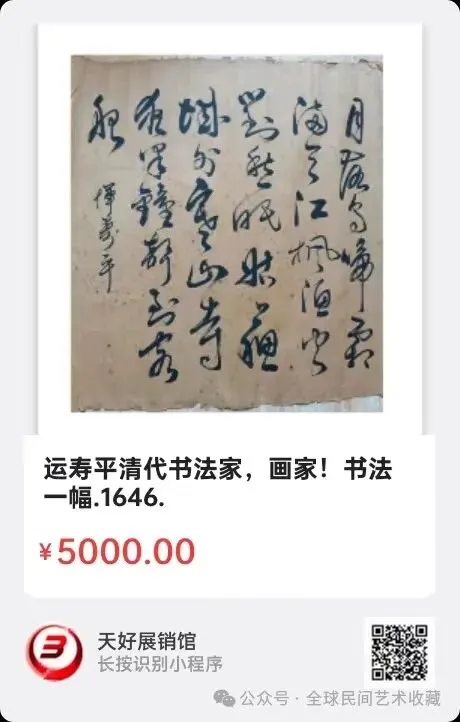 月落烏啼霜
滿天江楓漁火
對愁眠姑蘇
城外寒山寺
夜半鐘聲到客
船
惲壽平
运寿平清代书法家，画家！书法
一幅.1646.
¥5000.00
天好展销馆
长按识别小程序
公众号 · 全球民间艺术收藏